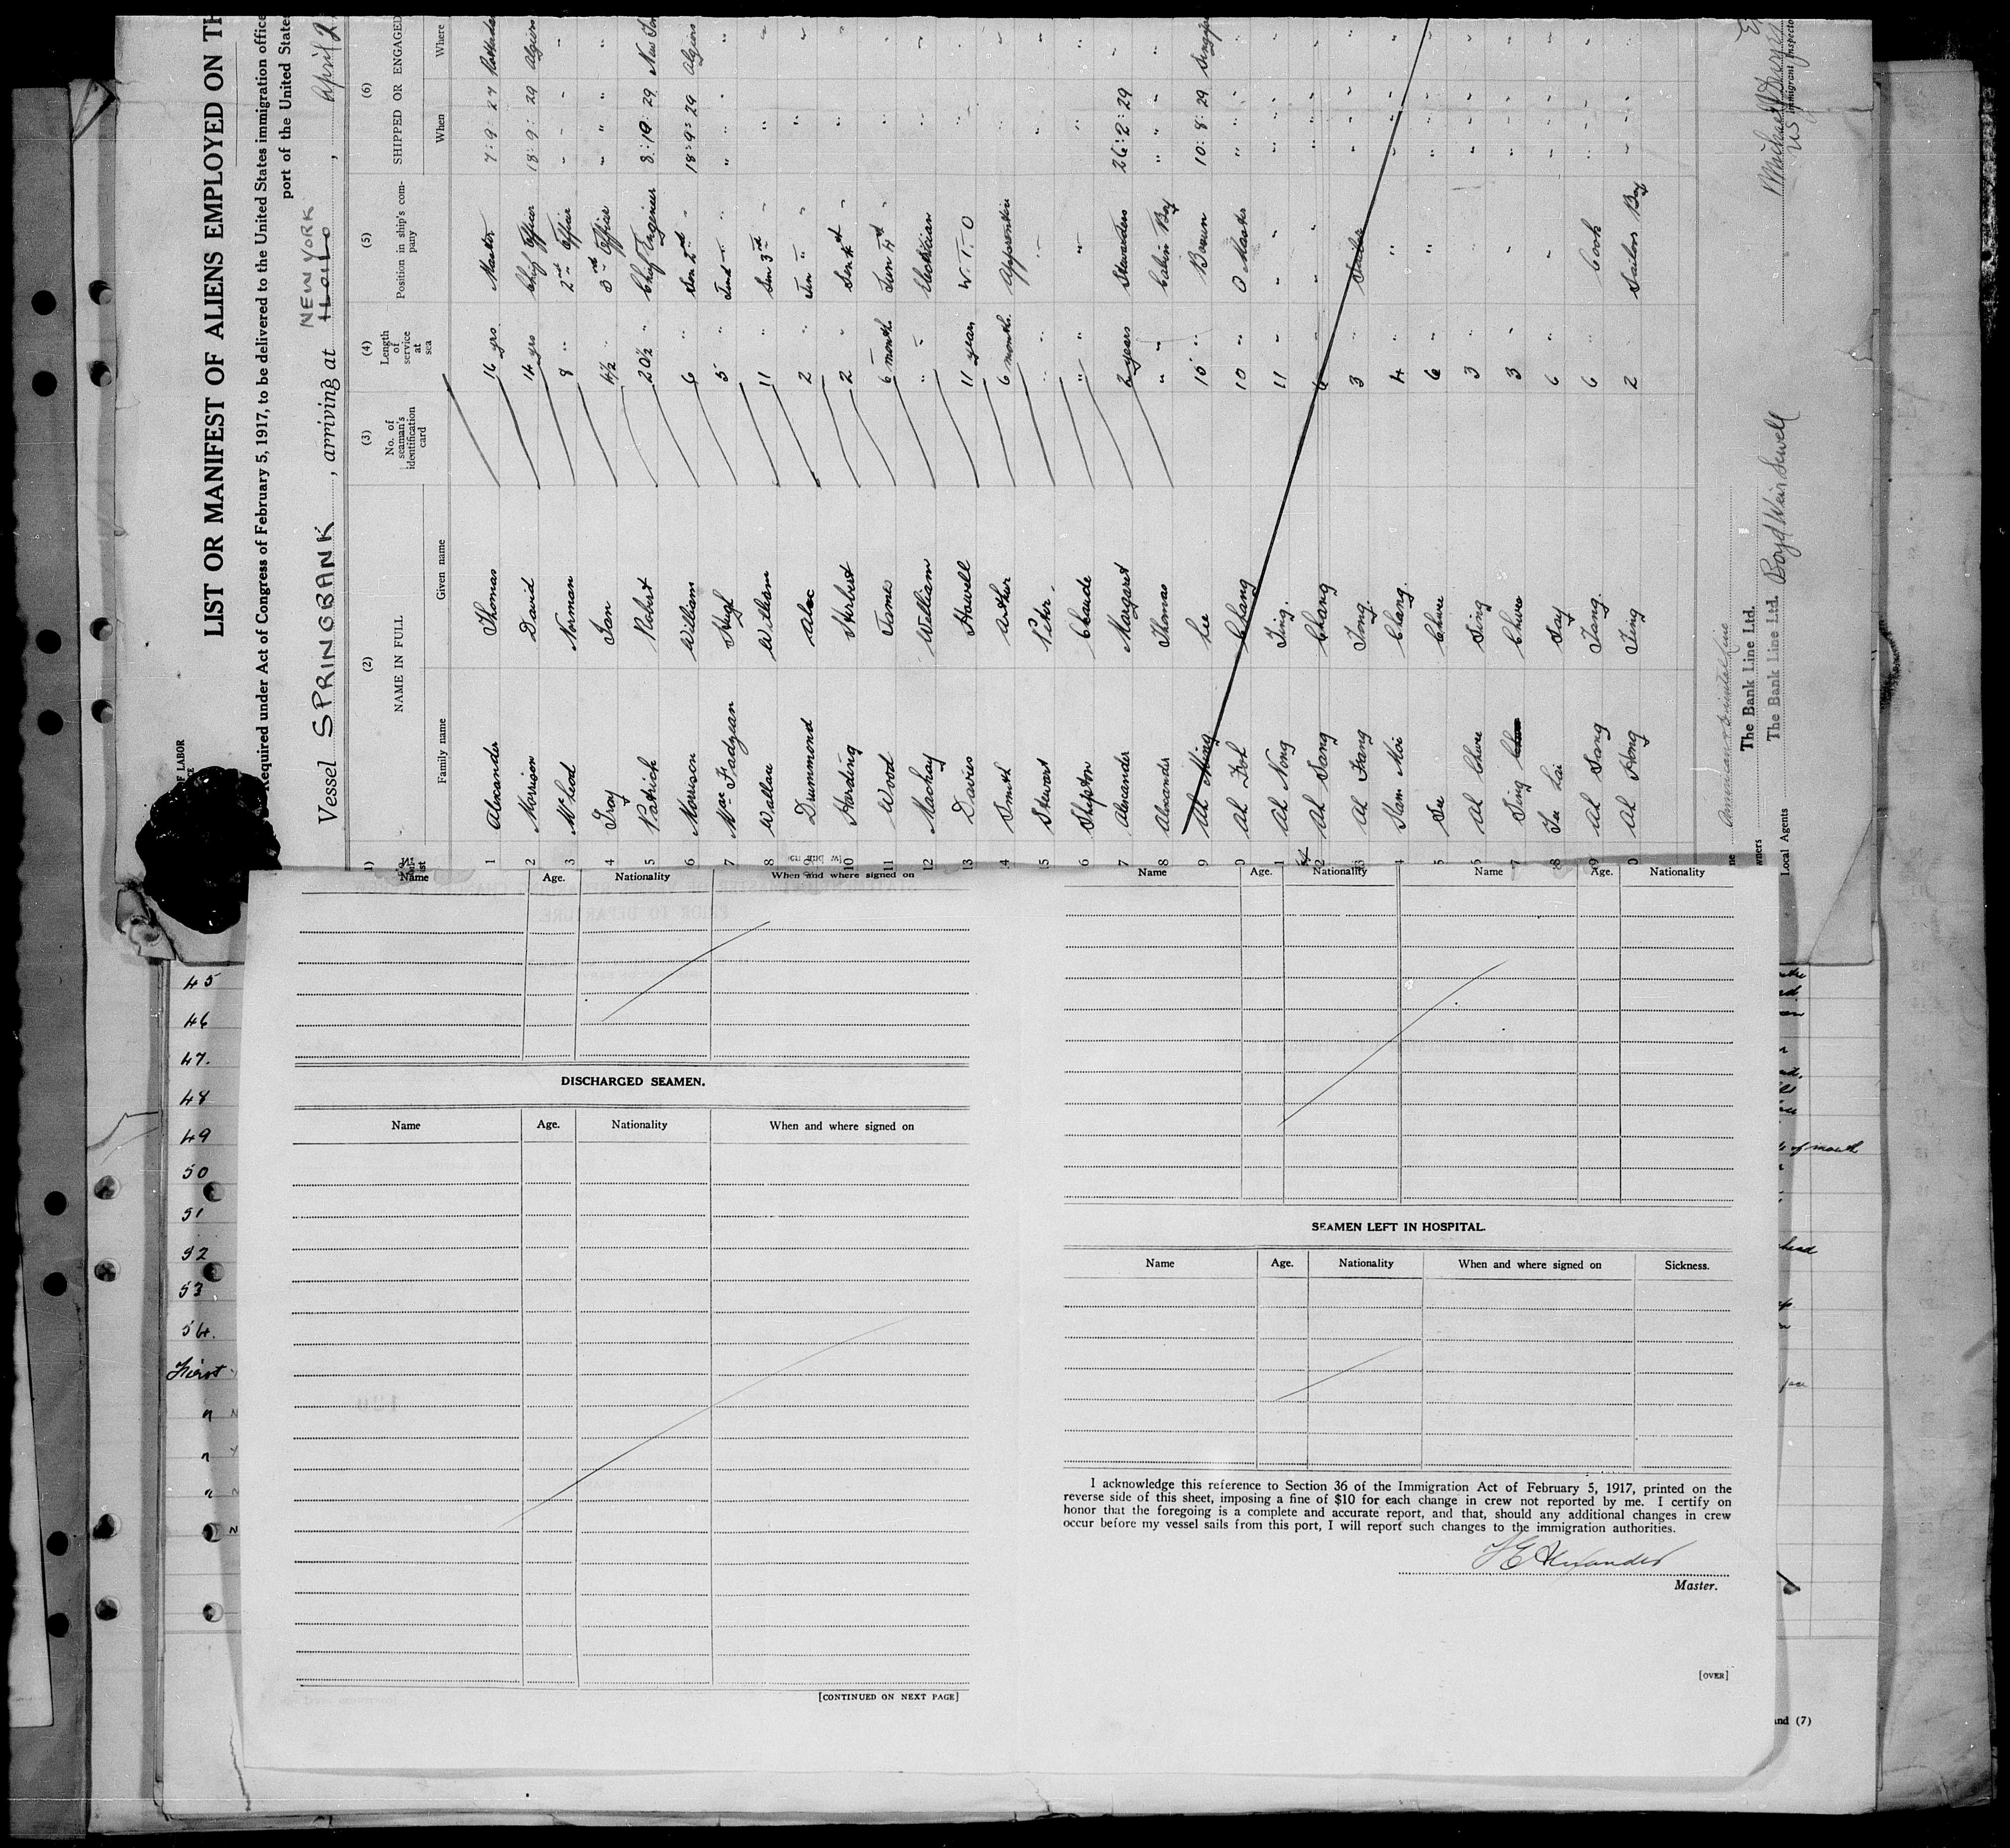 LIST OR MANIFEST OF ALIENS EMPLOYED ON TH
Required under Act of Congress of February 5, 1917, to be delivered to the United States immigration office
port of the United States
NEW YORK
Vessel SPRINGBANK, arriving at ILOILO, April 2
(2) (3) (4) (5) (6)
NAME IN FULL No. of seaman's identification card Length of service at sea Position in ship's company SHIPPED OR ENGAGED
Family name Given name When Where
1 Alexander Thomas 16 yrs Master 7:9:27
2 Morrison David 14 yrs Chief Officer 18:9:29 Algiers
3 McLeod Norman 8 " 2nd Officer "
4 Gray Ian 4½ " 3rd Officer "
5 Patrick Robert 20½ " Chief Engineer 8:19:29 New Yor
6 Morrison William 6 " Sen 2nd " 18:9:29 Algiers
7 Mac Fadyean Hugh 5 " "
8 Wallau William 11 " Sen 3rd "
9 Drummond Alec 2 " Jun " "
10 Harding Herbert 2 " Sen 4th "
11 Wood James 6 months Jun 4th "
12 Machay William " Electrician
13 Davies Howell 11 years W.T.O
14 Smith Arthur 6 months Apprentice
15 Stewart Peter " "
6 Shipton Claude " "
7 Alexander Margaret 2 years Stewardess 26:2:29
8 Alexander Thomas " Cabin Boy "
9 Ah Ming Lee 10 " Bosun 10:8:29
0 Ah Foh Chang 10 " Q Master "
1 Ah Nong Jing 11 " "
2 Ah Sang Chang 6 " "
3 Ah Frang Tong 3 " Sailor "
4 Sam Moi Chang 4 " "
5 Su Chwe 6 " "
6 Ah Chwe Sing 3 " "
7 Sing Chwe 3 " "
8 Fu Lai Say 6 " "
9 Ah Song Tang 6 " Cook "
0 Ah Hong Jing 2 Sailors Boy "
American & Oriental Line
The Bank Line Ltd.
Local Agents The Bank Line Ltd. Boyd Weir Sewell
US Immigrant Inspector
Name Age. Nationality When and where signed on
DISCHARGED SEAMEN.
Name Age. Nationality When and where signed on
[CONTINUED ON NEXT PAGE]
Name Age. Nationality Name Age. Nationality
SEAMEN LEFT IN HOSPITAL.
Name Age. Nationality When and where signed on Sickness.
I acknowledge this reference to Section 36 of the Immigration Act of February 5, 1917, printed on the
reverse side of this sheet, imposing a fine of $10 for each change in crew not reported by me. I certify on
honor that the foregoing is a complete and accurate report, and that, should any additional changes in crew
occur before my vessel sails from this port, I will report such changes to the immigration authorities.
Master.
[OVER]
45
46
47.
48
49
50
51
52
53
54.
First
of mouth
head
and (7)